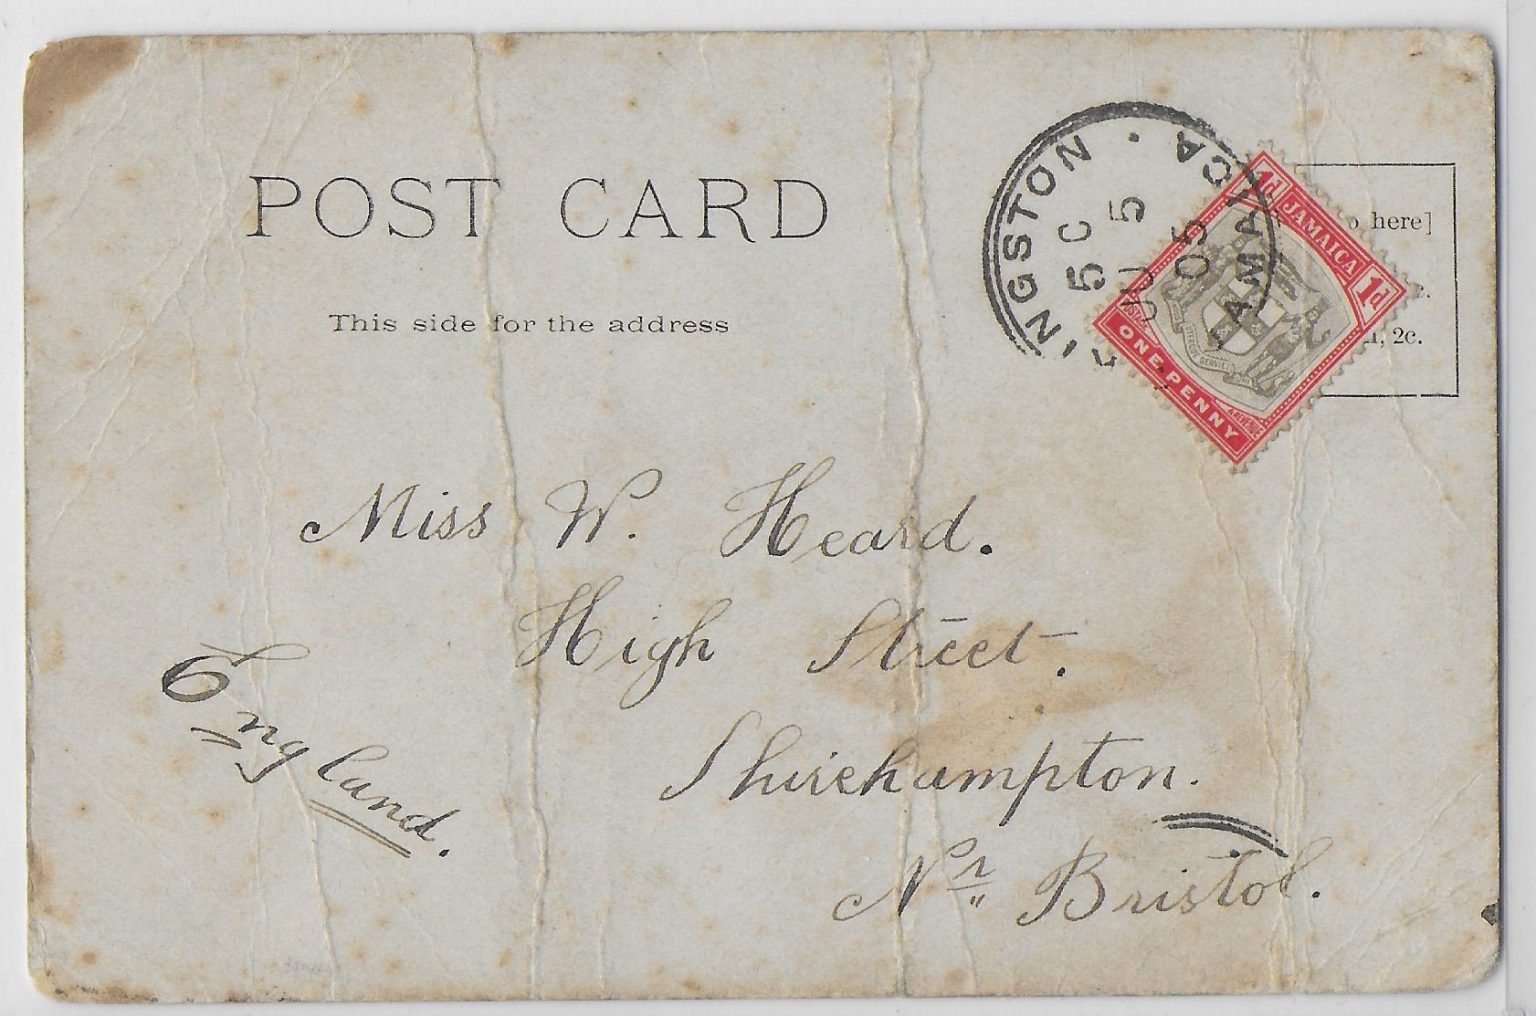 POST CARD
This side for the address
KINGSTON · JAMAICA
5C
JU 5
05
1d JAMAICA 1d
POSTAGE & REVENUE
ONE PENNY
here]
2c.
Miss W. Heard.
High Street.
Shirehampton.
Nr Bristol.
England.